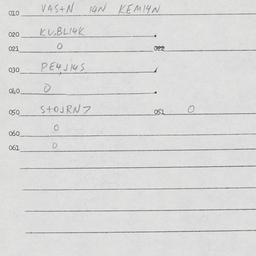 010 VAS+N IAN KEMIYN
020 KUBLIYK
021 0 022
030 PEYJIYS
040 0
050 S+OJRN7 051 0
060 0
061 0